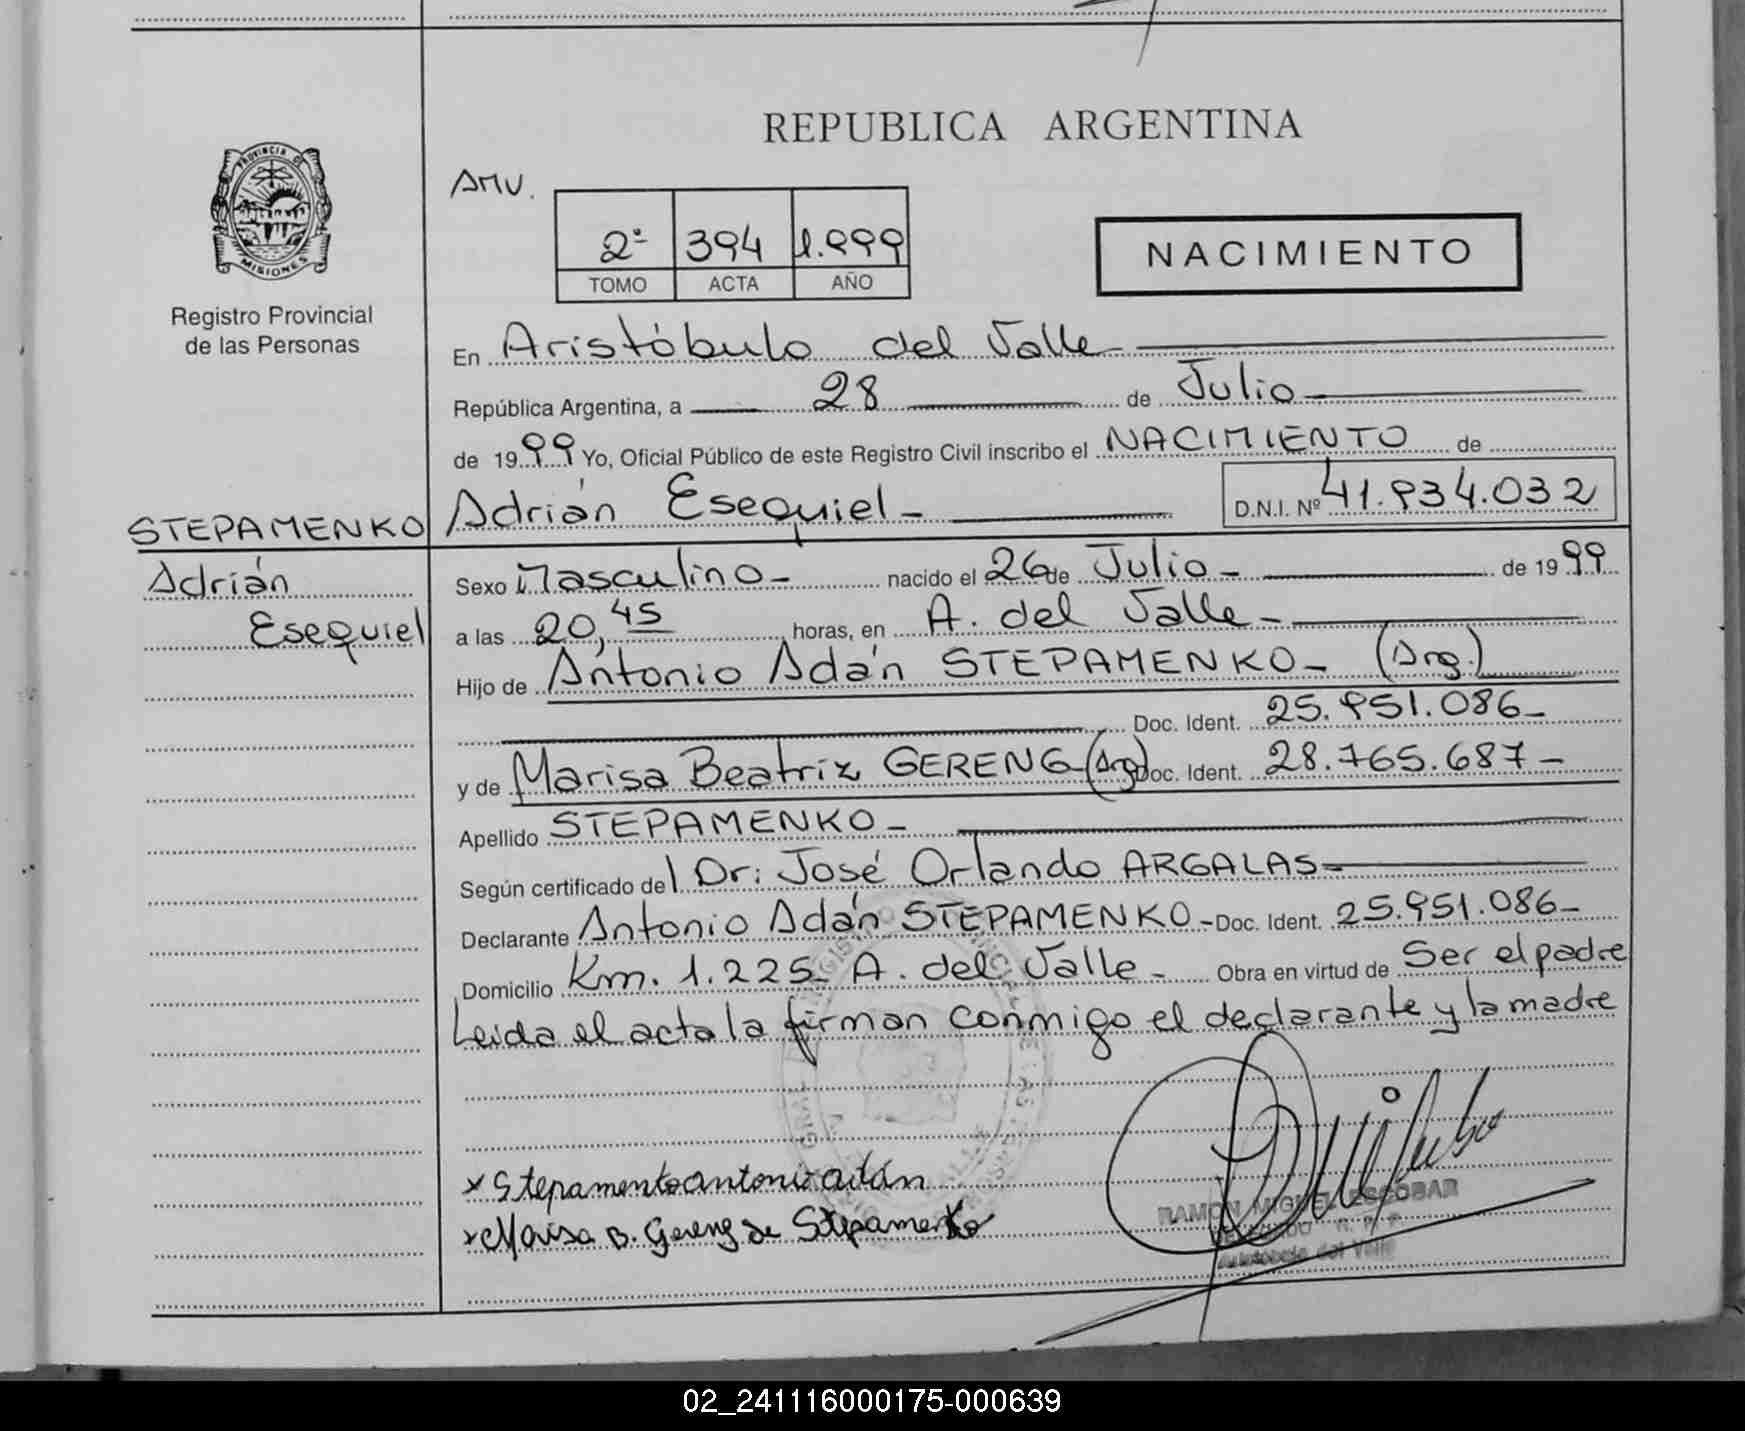 REPUBLICA ARGENTINA
PROVINCIA DE
MISIONES
Registro Provincial
de las Personas
AMV.
2º 394 1.999
TOMO ACTA AÑO
NACIMIENTO
En Aristóbulo del Valle
República Argentina, a 28 de Julio
de 1999 Yo, Oficial Público de este Registro Civil inscribo el NACIMIENTO de
Adrián Esequiel - D.N.I. Nº 41.934.032
STEPAMENKO
Adrián
Esequiel
Sexo Masculino - nacido el 26 de Julio - de 1999
a las 20,45 horas, en A. del Valle -
Hijo de Antonio Adán STEPAMENKO - (Arg.)
Doc. Ident. 25.951.086 -
y de Marisa Beatriz GERENG (Arg) Doc. Ident. 28.765.687 -
Apellido STEPAMENKO -
Según certificado del Dr: José Orlando ARGALAS -
Declarante Antonio Adán STEPAMENKO - Doc. Ident. 25.951.086 -
Domicilio Km. 1.225 A. del Valle - Obra en virtud de Ser el padre
Leida el acta la firman conmigo el declarante y la madre
x Stepamenko antonio adán
x Marisa B. Gereng de Stepamenko
RAMON MIGUEL ESCOBAR
R. P. P.
Aristóbulo del Valle
02_241116000175-000639